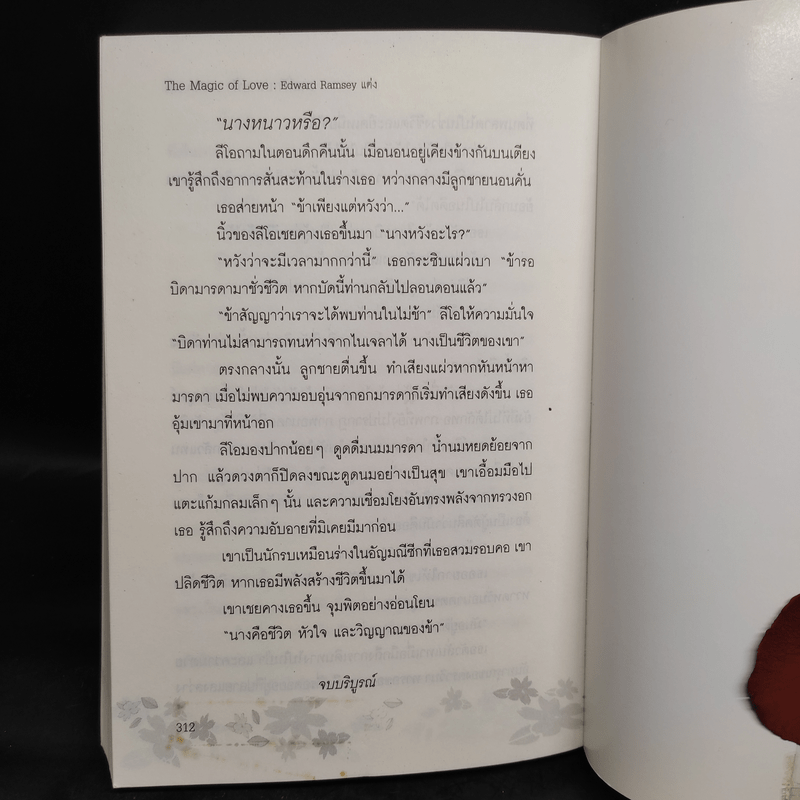 The Magic of Love : Edward Ramsey แต่ง
“นางหนาวหรือ?”
ลีโอถามในตอนดึกคืนนั้น เมื่อนอนอยู่เคียงข้างกันบนเตียง
เขารู้สึกถึงอาการสั่นสะท้านในร่างเธอ หว่างกลางมีลูกชายนอนคั่น
เธอส่ายหน้า “ข้าเพียงแต่หวังว่า...”
นิ้วของลีโอเชยคางเธอขึ้นมา “นางหวังอะไร?”
“หวังว่าจะมีเวลามากกว่านี้” เธอกระซิบแผ่วเบา “ข้ารอ
บิดามารดามาชั่วชีวิต หากบัดนี้ท่านกลับไปลอนดอนแล้ว”
“ข้าสัญญาว่าเราจะได้พบท่านในไม่ช้า” ลีโอให้ความมั่นใจ
“บิดาท่านไม่สามารถทนห่างจากไนเจลาได้ นางเป็นชีวิตของเขา”
ตรงกลางนั้น ลูกชายตื่นขึ้น ทำเสียงแผ่วหากหันหน้าหา
มารดา เมื่อไม่พบความอบอุ่นจากอกมารดาก็เริ่มทำเสียงดังขึ้น เธอ
อุ้มเขามาที่หน้าอก
ลีโอมองปากน้อยๆ ดูดดื่มนมมารดา น้ำนมหยดย้อยจาก
ปาก แล้วดวงตาก็ปิดลงขณะดูดนมอย่างเป็นสุข เขาเอื้อมมือไป
แตะแก้มกลมเล็กๆ นั้น และความเชื่อมโยงอันทรงพลังจากทรวงอก
เธอ รู้สึกถึงความอับอายที่มิเคยมีมาก่อน
เขาเป็นนักรบเหมือนร่างในอัญมณีซีกที่เธอสวมรอบคอ เขา
ปลิดชีวิต หากเธอมีพลังสร้างชีวิตขึ้นมาได้
เขาเชยคางเธอขึ้น จุมพิตอย่างอ่อนโยน
“นางคือชีวิต หัวใจ และวิญญาณของข้า”
จบบริบูรณ์
312